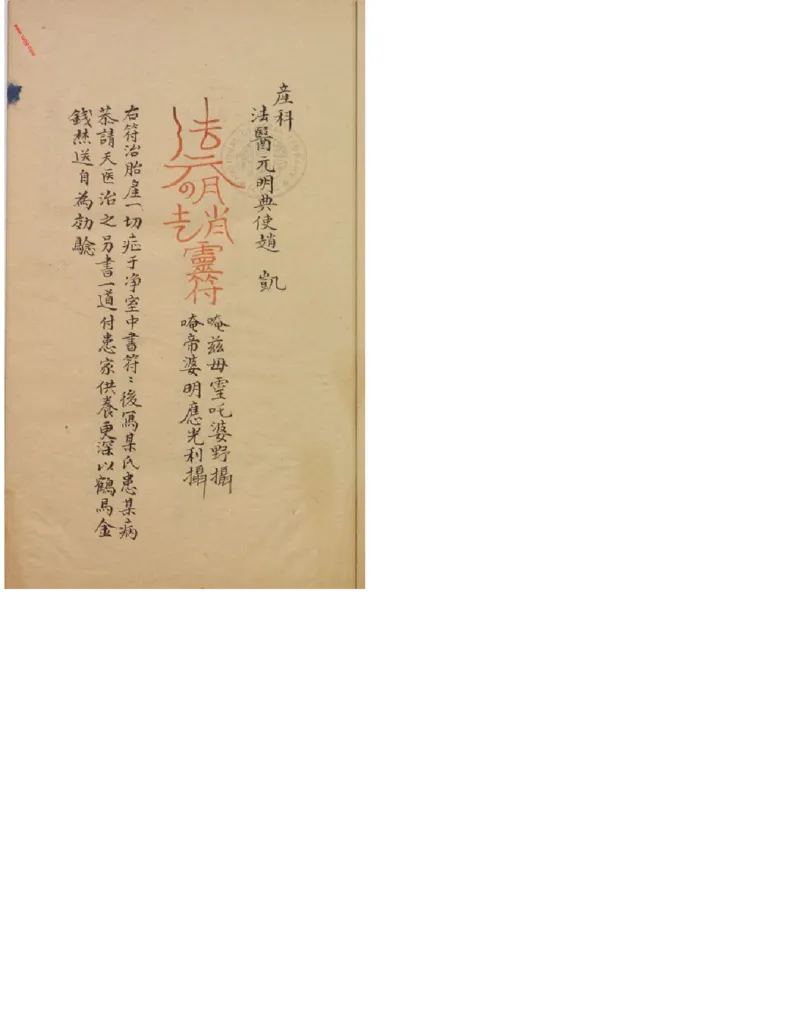 産科
法醫元明典使趙　凱
法元明趙靈符
唵茲毋霊吒婆野攝
唵帝婆明應光利攝
右符治胎産一切症于净室中書符：後寫某氏患某病
恭請天医治之另書一道付患家供養更深以鶴馬金
錢焚送自為効驗